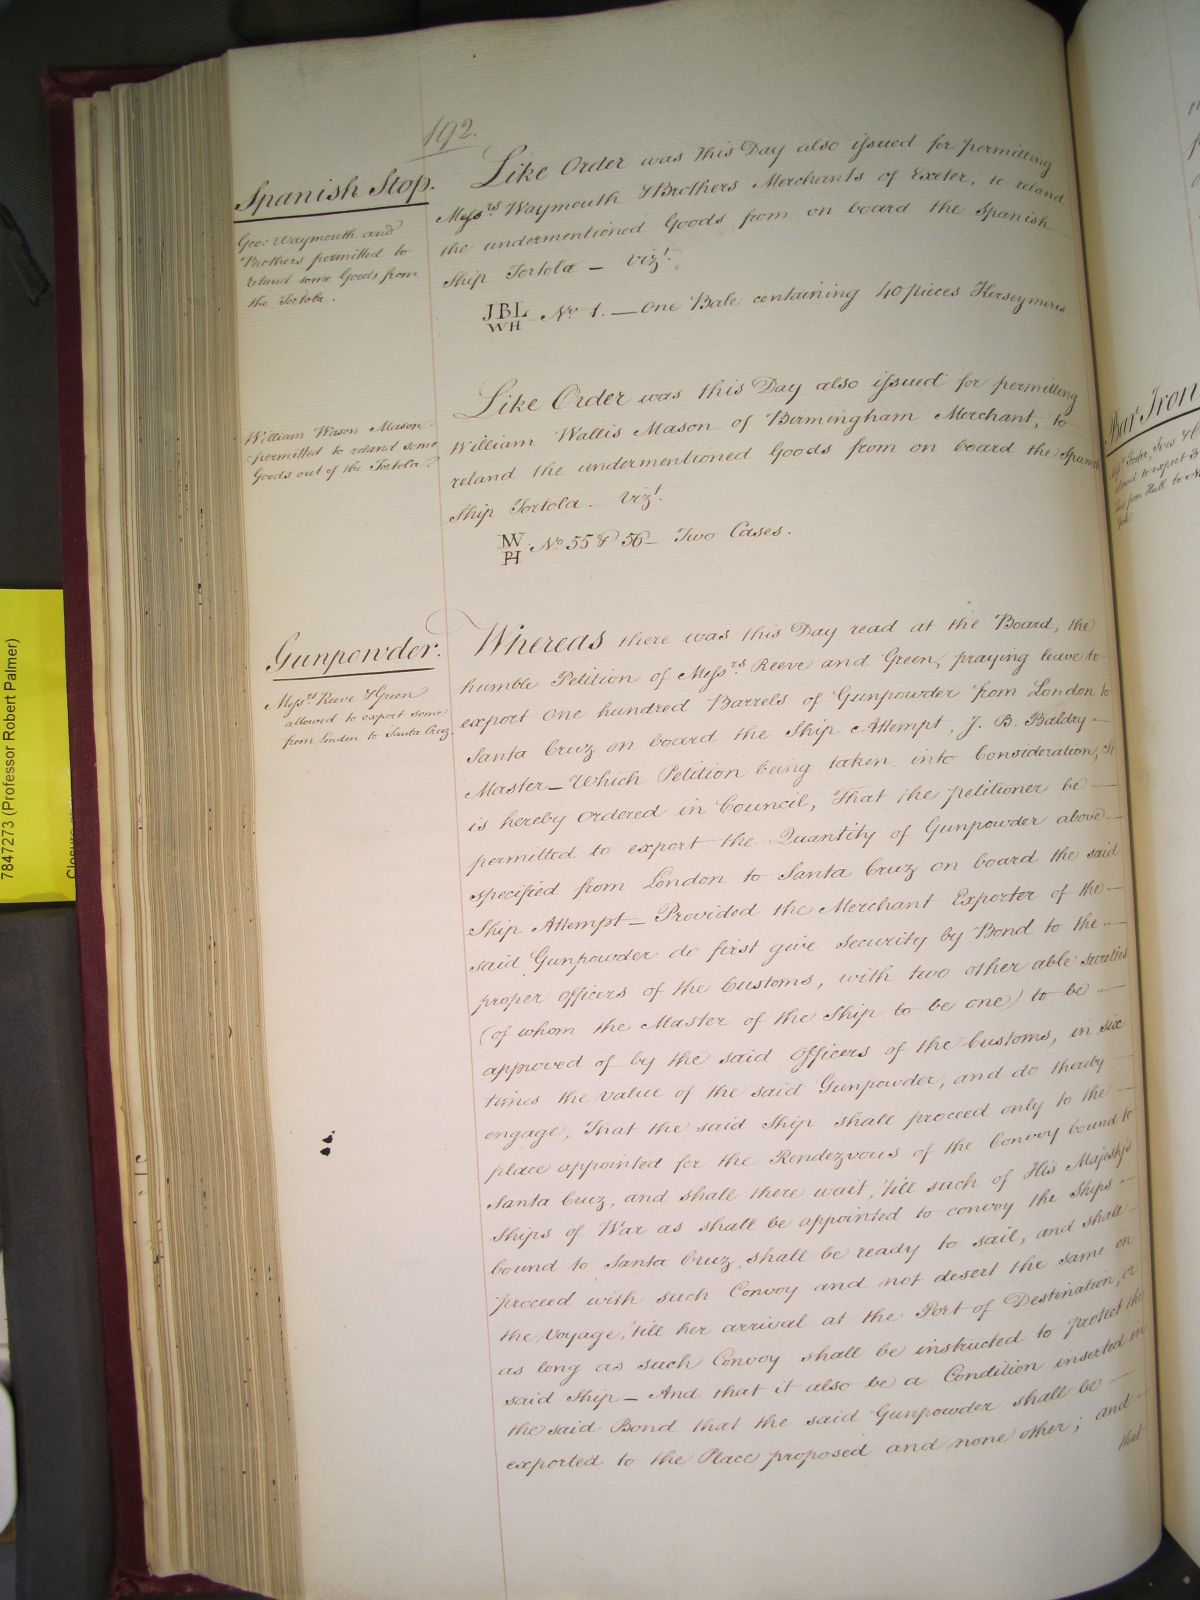 192.
Spanish Stop.
Geo: Waymouth and
Brothers permitted to
reland some Goods from
the Tortola.
Like Order was this Day also issued for permitting
Messrs Waymouth & Brothers Merchants of Exeter, to reland
the undermentioned Goods from on board the Spanish
Ship Tortola — Vizt.
JBL
WH
No 1. — One Bale containing 40 pieces Kerseymeres
William Wason Mason
permitted to reland some
Goods out of the Tortola.
Like Order was this Day also issued for permitting
William Wallis Mason of Birmingham Merchant, to
reland the undermentioned Goods from on board the Spanish
Ship Tortola — Vizt.
No 55 & 56 — Two Cases.
Gunpowder.
Messrs Reeve & Green
allowed to export some
from London to Santa Cruz.
Whereas there was this Day read at the Board, the
humble Petition of Messrs Reeve and Green, praying leave to
export One hundred Barrels of Gunpowder from London to
Santa Cruz on board the Ship Attempt, J. B. Baldry —
Master — Which Petition being taken into Consideration, It
is hereby Ordered in Council, That the petitioner be —
permitted to export the Quantity of Gunpowder above —
specified from London to Santa Cruz on board the said
Ship Attempt — Provided the Merchant Exporter of the —
said Gunpowder do first give security by Bond to the —
proper Officers of the Customs, with two other able sureties
(of whom the Master of the Ship to be one) to be —
approved of by the said Officers of the Customs, in six
times the value of the said Gunpowder, and do thereby —
engage, That the said Ship shall proceed only to the —
place appointed for the Rendezvous of the Convoy bound to
Santa Cruz, and shall there wait, 'till such of His Majesty's
Ships of War as shall be appointed to convoy the Ships —
bound to Santa Cruz, shall be ready to sail, and shall —
proceed with such Convoy and not desert the same on
the Voyage, 'till her arrival at the Port of Destination, or
as long as such Convoy shall be instructed to protect the
said Ship — And that it also be a Condition inserted in
the said Bond that the said Gunpowder shall be —
exported to the Place proposed and none other; and —
that
Bar Iron
7847273 (Professor Robert Palmer)